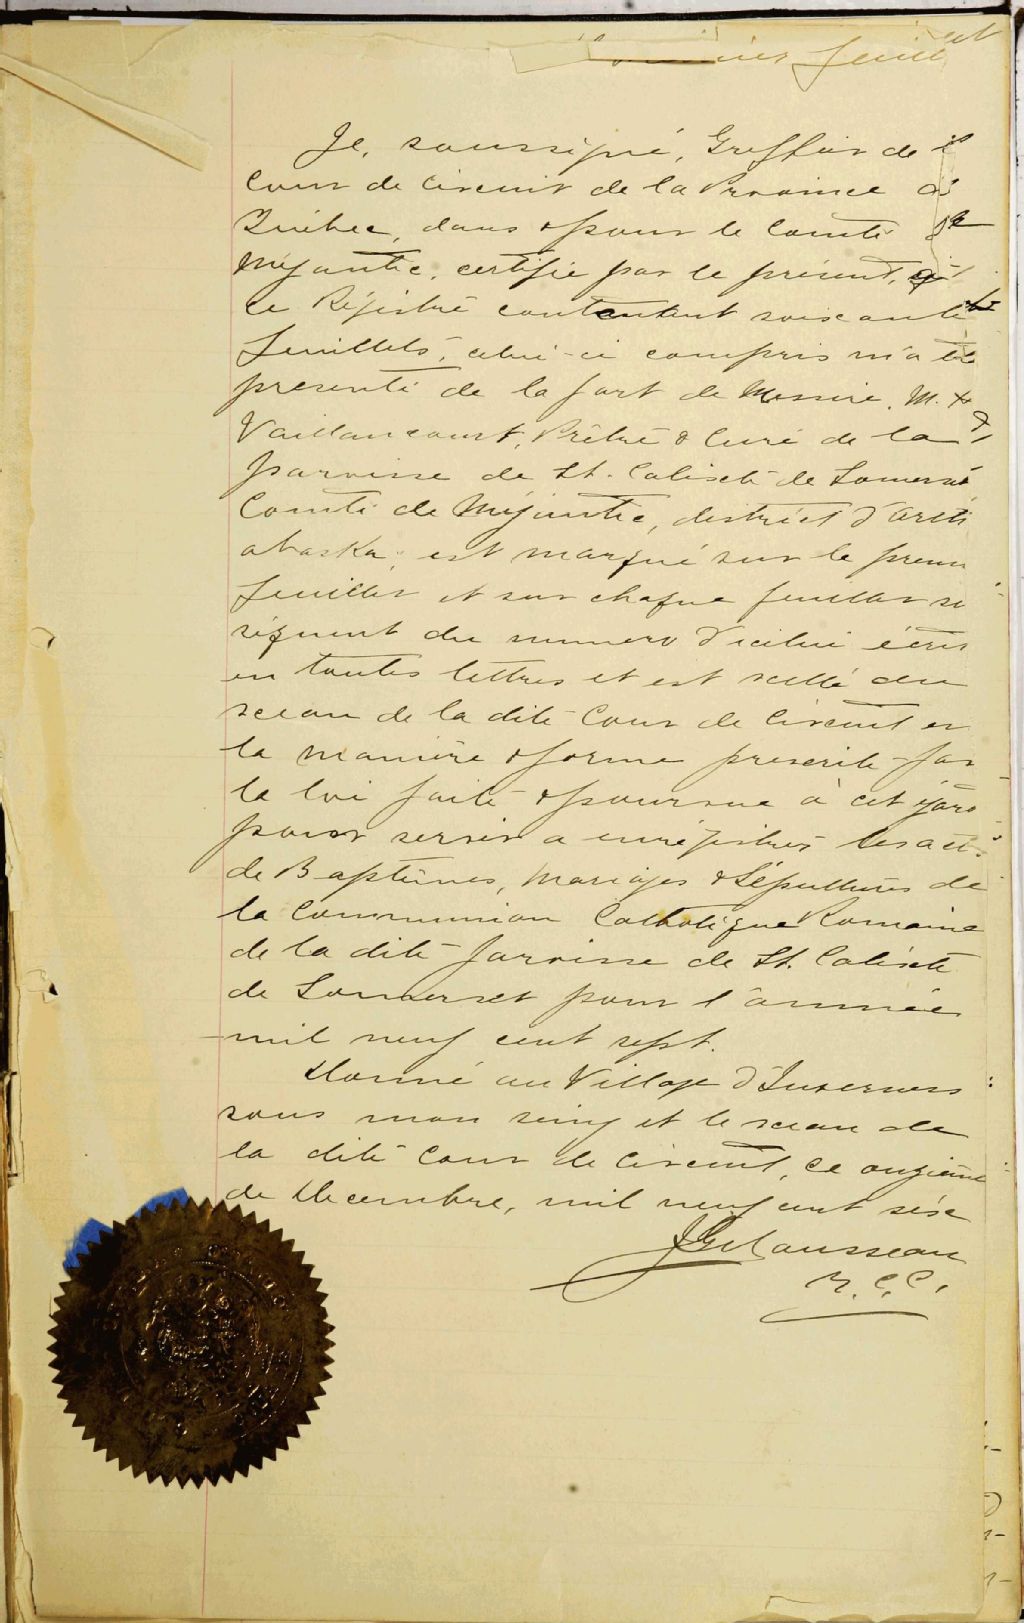 feuillet
Je, soussigné, Greffier de l
Cour de Circuit de la Province d
Québec, dans & pour le Comté de
Mégantic, certifie par le présent, q
ce Régistre contentent soixante
feuillets, celui-ci compris m'a été
presenté de la part de Messire. M.
Vaillancourt, Prêtre & Curé de la
paroisse de St. Calixte de Somerse
Comté de Mégantic, district d'Arth
abaska; est marqué sur le premi
feuillet et sur chaque feuillet su
séquent du numero d'icelui écrit
en toutes lettres et est scellé du
sceau de la dite Cour de Circuit en
la manière & forme prescrite par
la loi faite & pourvue à cet égard
pour servir a enrégistrer les act
de Baptêmes, Mariages & Sépultures de
la Communion Catholique Romaine
de la dite Paroisse de St. Calixte
de Somerset pour l'année
mil neuf cent sept.
Donné au Village d'Inverness
sous mon seing et le sceau de
la dite Cour de Circuit, ce onzième
de Décembre, mil neuf cent six
Rousseau
C. C.